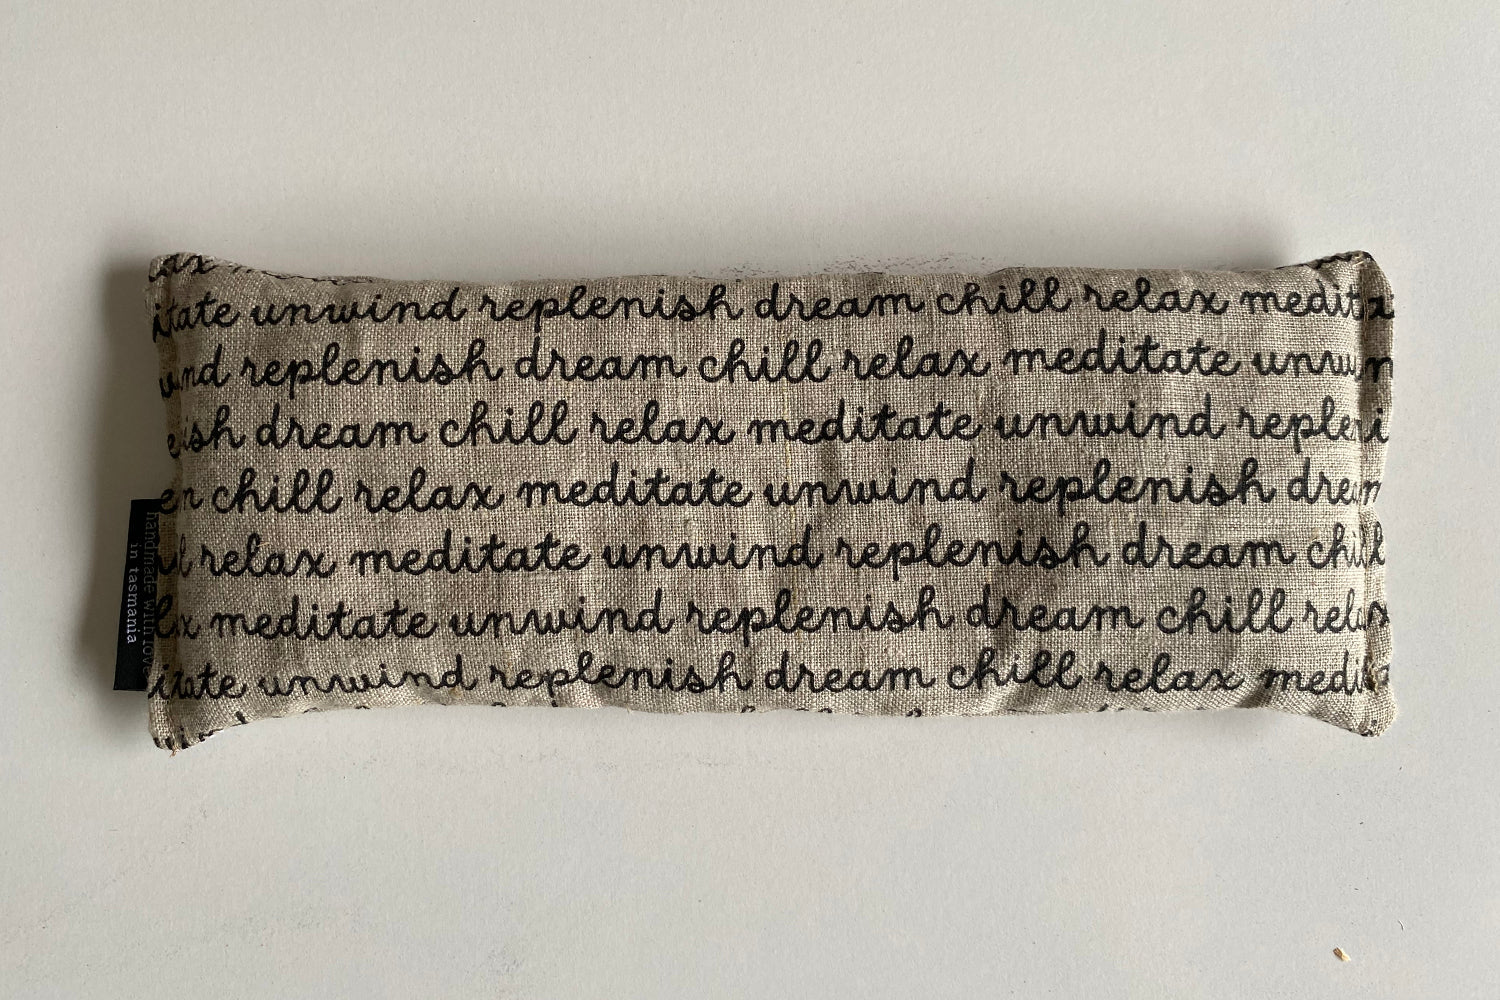 relax
itate unwind replenish dream chill relax medit
ind replenish dream chill relax meditate unwi
enish dream chill relax meditate unwind repleni
chill relax meditate unwind replenish drea
relax meditate unwind replenish dream chill
meditate unwind replenish dream chill relax
itate unwind replenish dream chill relax medi
handmade with love
in tasmania